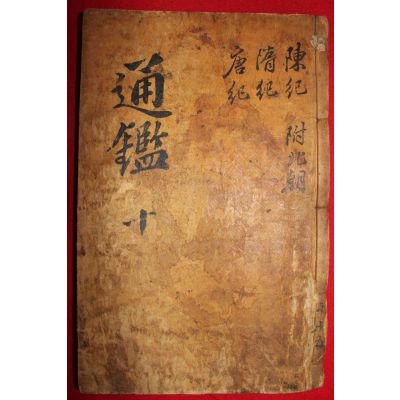 陳紀 附北朝
隋紀
唐紀
通鑑 十